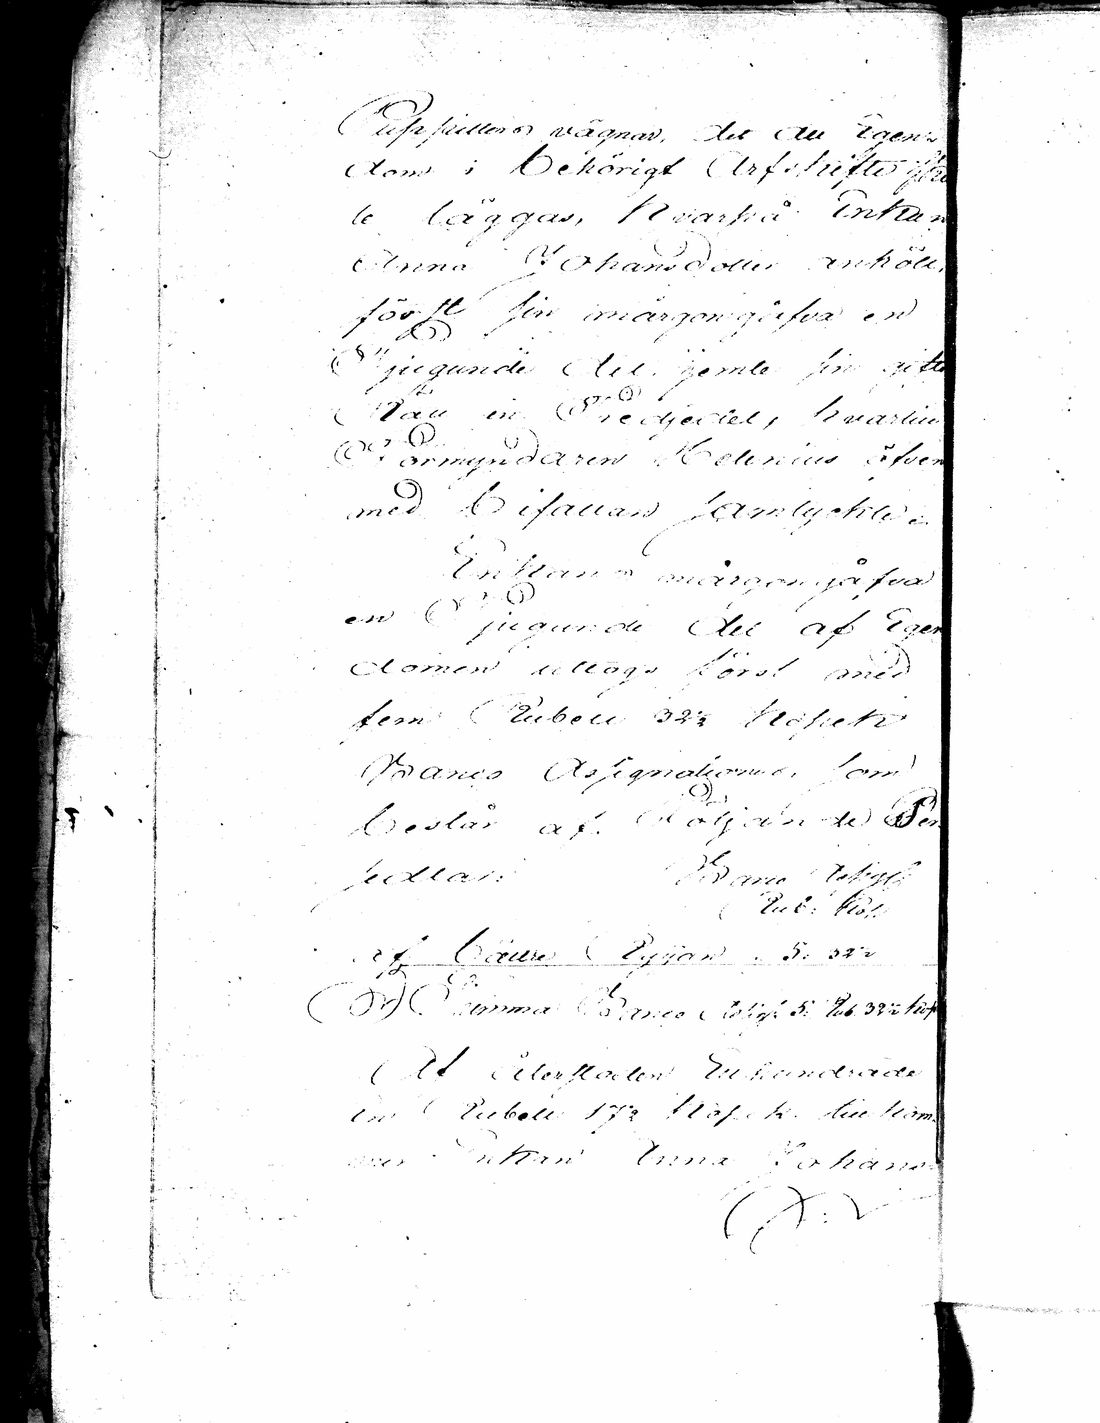 Pupillens vägnar, det all Egen=
dom i behörigt Arfskifte före
le läggas, hvarpå Enkan
Anna Johansdotter anhölt,
först sin mårgongåfva en
Tjugunde del jemte sin gifto
Rätt en Tredjedel, hvartill
Förmyndaren Helenius äfven
med bifallan samtyckte.
Enkans mårgongåfva
en Tjugunde del af Egen
domen uttogs först med
fem Rubell 32½ Kopek
Banco Assignationer, som
består af följande Per
sedlar: Banco Assigt
Rub: Kop:
af bättre Ryijan 5. 32½
Summa Banco Assigt 5 Rub 32½ Kop
Af återstoden Ethundrade
en Rubell 17½ Kopek tillkom
mer Enkan Anna Johans=